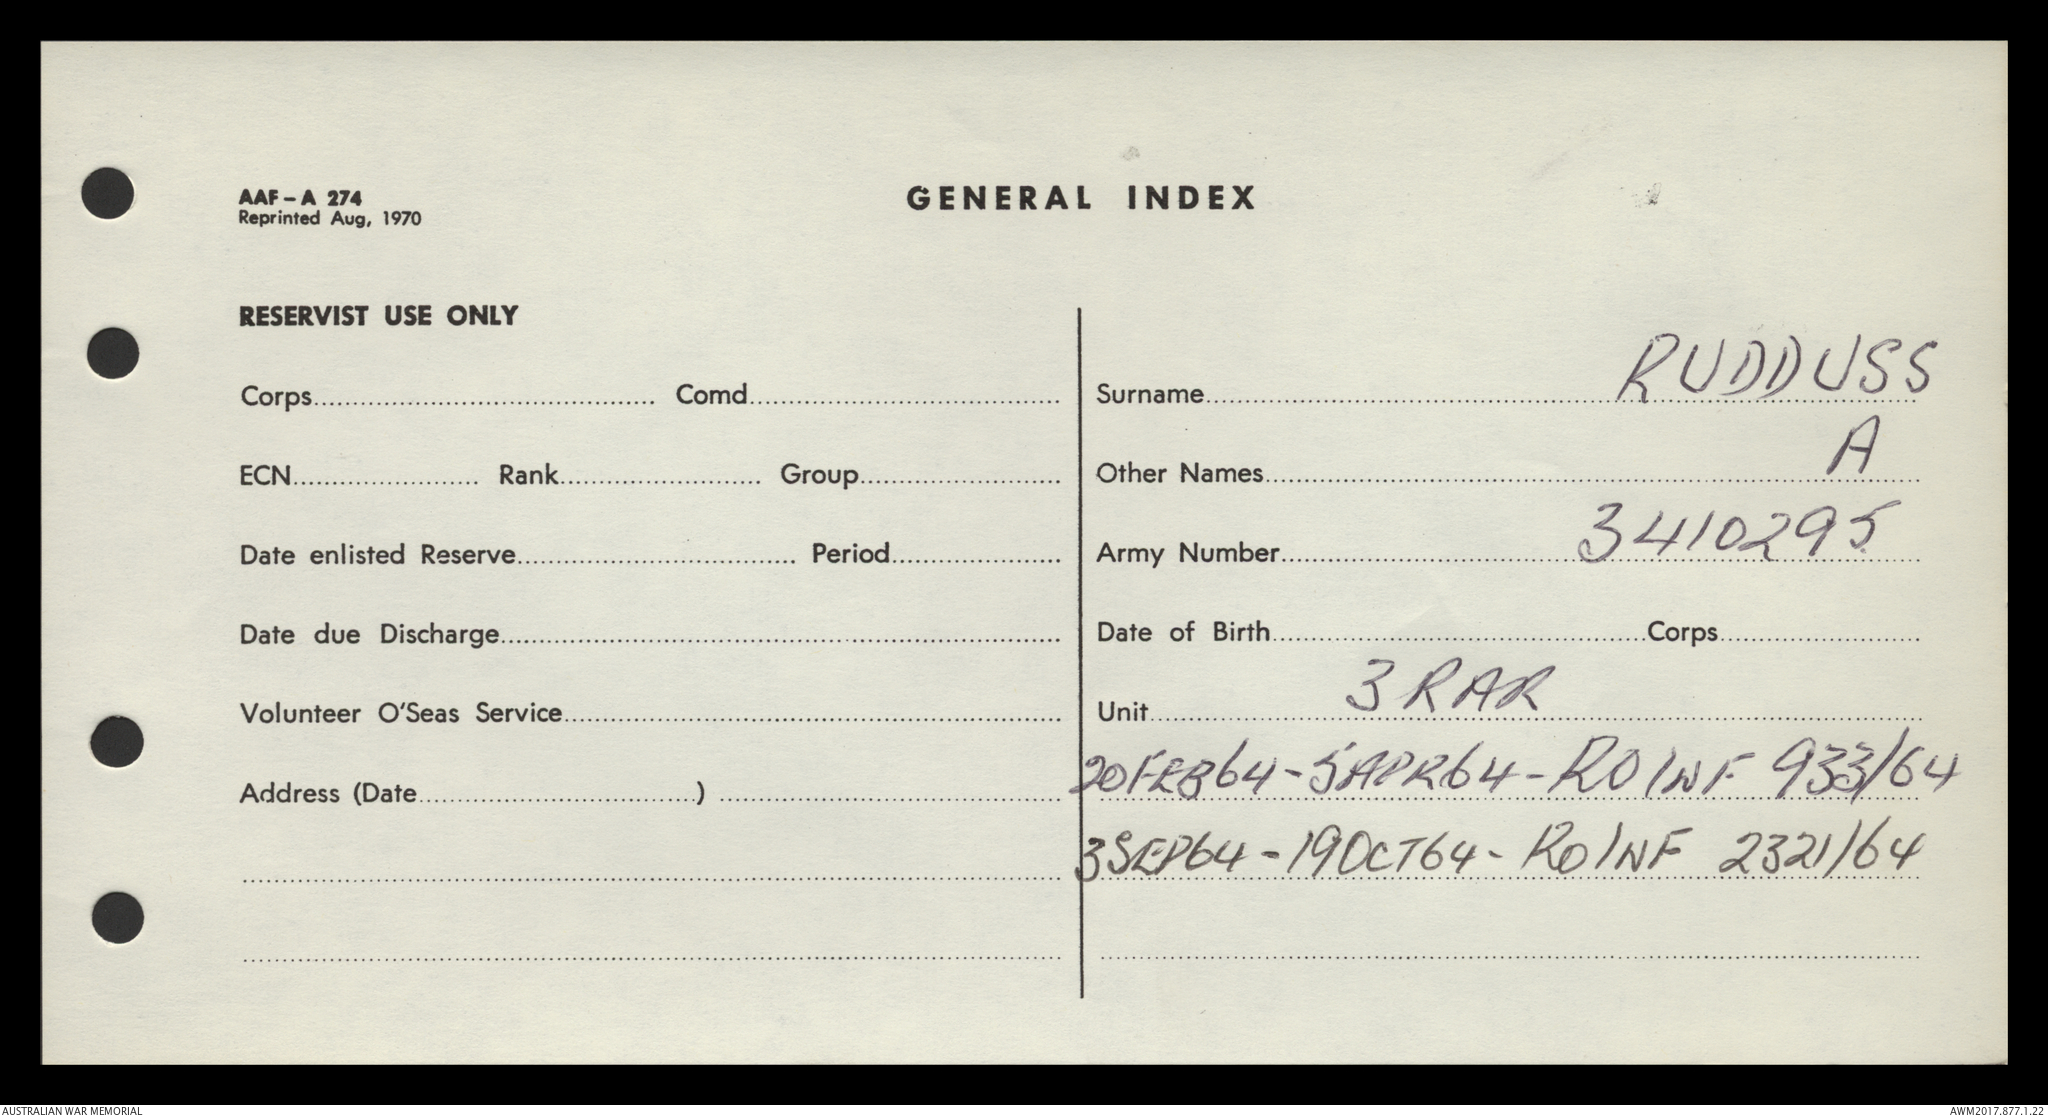 AAF – A 274
Reprinted Aug, 1970
GENERAL INDEX
RESERVIST USE ONLY
Corps........ Comd........
ECN........ Rank........ Group........
Date enlisted Reserve........ Period........
Date due Discharge........
Volunteer O'Seas Service........
Address (Date........) ........
Surname........ RUDDUSS
Other Names........ A
Army Number........ 3410295
Date of Birth........ Corps........
Unit........ 3 RAR
20FEB64 - 5APR64 - ROINF 933/64
3SEP64 - 19OCT64 - ROINF 2321/64
AUSTRALIAN WAR MEMORIAL
AWM2017.877.1.22